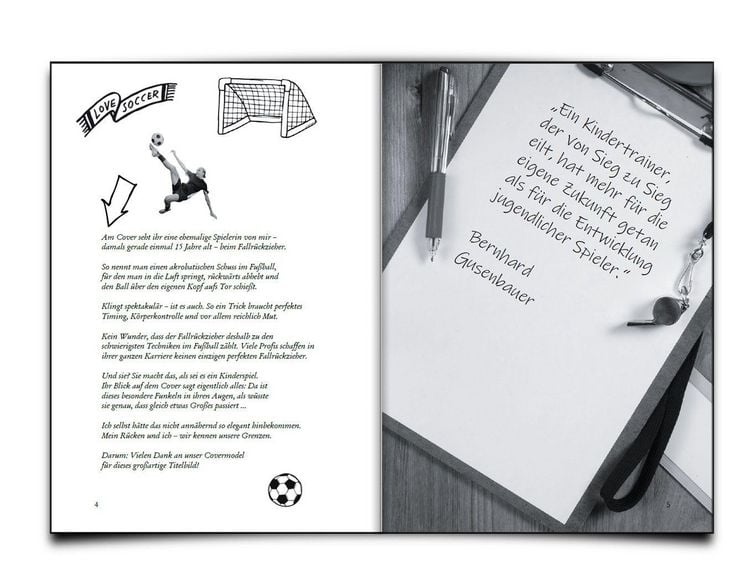 LOVE SOCCER
Am Cover seht ihr eine ehemalige Spielerin von mir –
damals gerade einmal 15 Jahre alt – beim Fallrückzieher.
So nennt man einen akrobatischen Schuss im Fußball,
für den man in die Luft springt, rückwärts abhebt und
den Ball über den eigenen Kopf aufs Tor schießt.
Klingt spektakulär – ist es auch. So ein Trick braucht perfektes
Timing, Körperkontrolle und vor allem reichlich Mut.
Kein Wunder, dass der Fallrückzieher deshalb zu den
schwierigsten Techniken im Fußball zählt. Viele Profis schaffen in
ihrer ganzen Karriere keinen einzigen perfekten Fallrückzieher.
Und sie? Sie macht das, als sei es ein Kinderspiel.
Ihr Blick auf dem Cover sagt eigentlich alles: Da ist
dieses besondere Funkeln in ihren Augen, als wüsste
sie genau, dass gleich etwas Großes passiert ...
Ich selbst hätte das nicht annähernd so elegant hinbekommen.
Mein Rücken und ich – wir kennen unsere Grenzen.
Darum: Vielen Dank an unser Covermodel
für dieses großartige Titelbild!
4
„Ein Kindertrainer,
der von Sieg zu Sieg
eilt, hat mehr für die
eigene Zukunft getan
als für die Entwicklung
jugendlicher Spieler.“
Bernhard
Gusenbauer
5